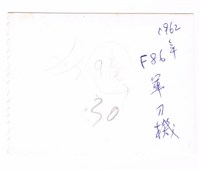 1962年
F86
軍刀機
30